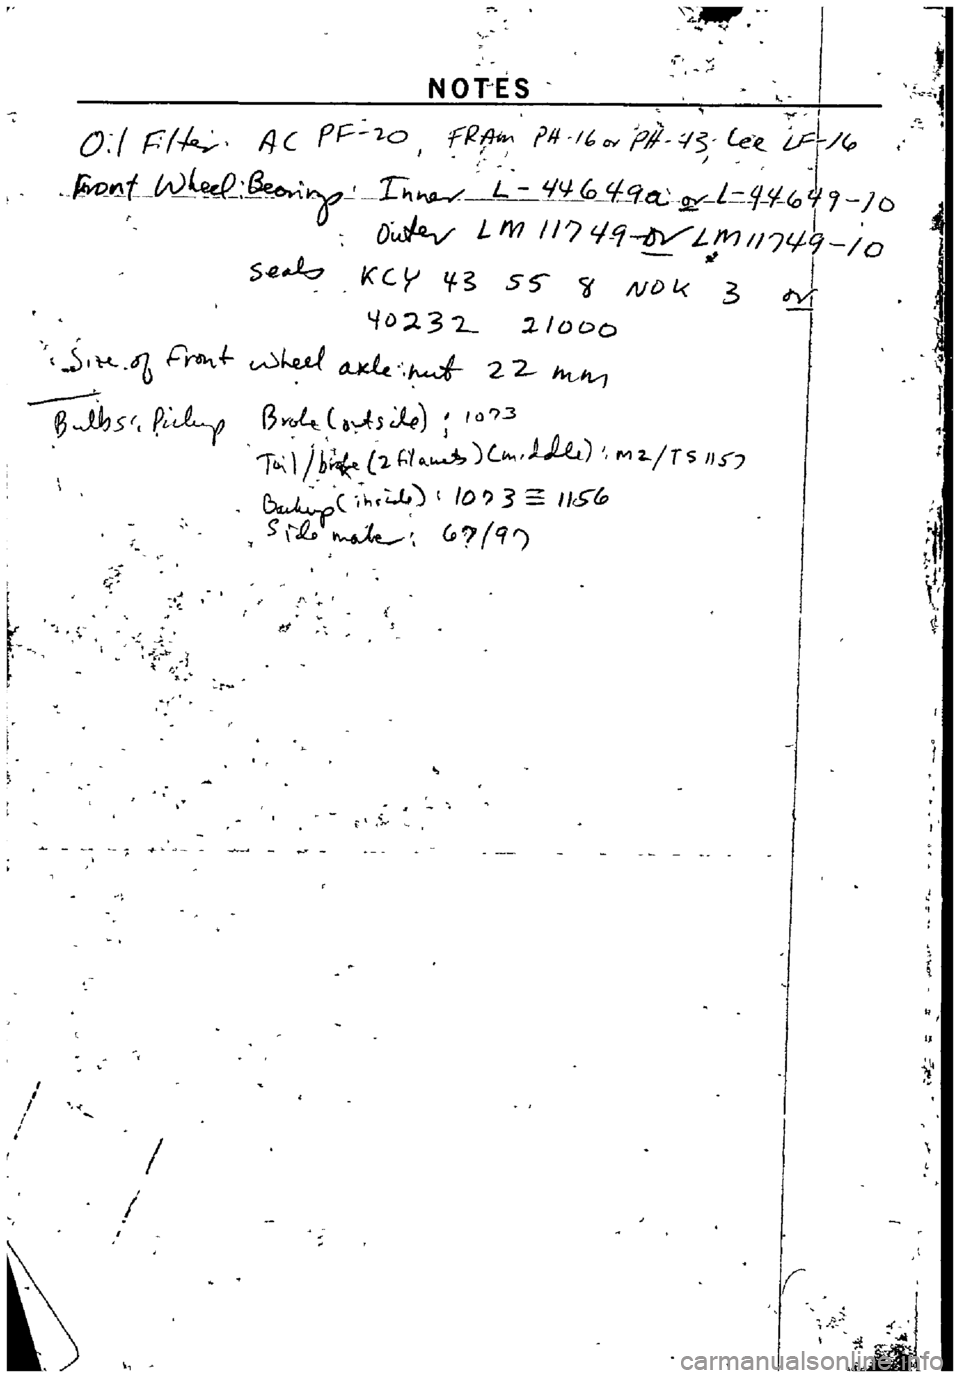 NOTES
Oil Filter: AC PF-20, FRAM PH-16 or PH-43, Lee LF-16
Front Wheel Bearings: Inner L-44649a or L-44649-10
: Outer LM 11749 or LM11749-10
Seals KCY 43 55 8 NOK 3 or
40232 21000
Size of Front wheel axle nut 22 mm
Bulbs: Pickup Brake (outside) : 1073
Tail/brake (2 filaments) (middle) : M2/TS 1157
Backup (inside) : 1073 ≡ 1156
Side marker : 67/97
carmanualsonline.info